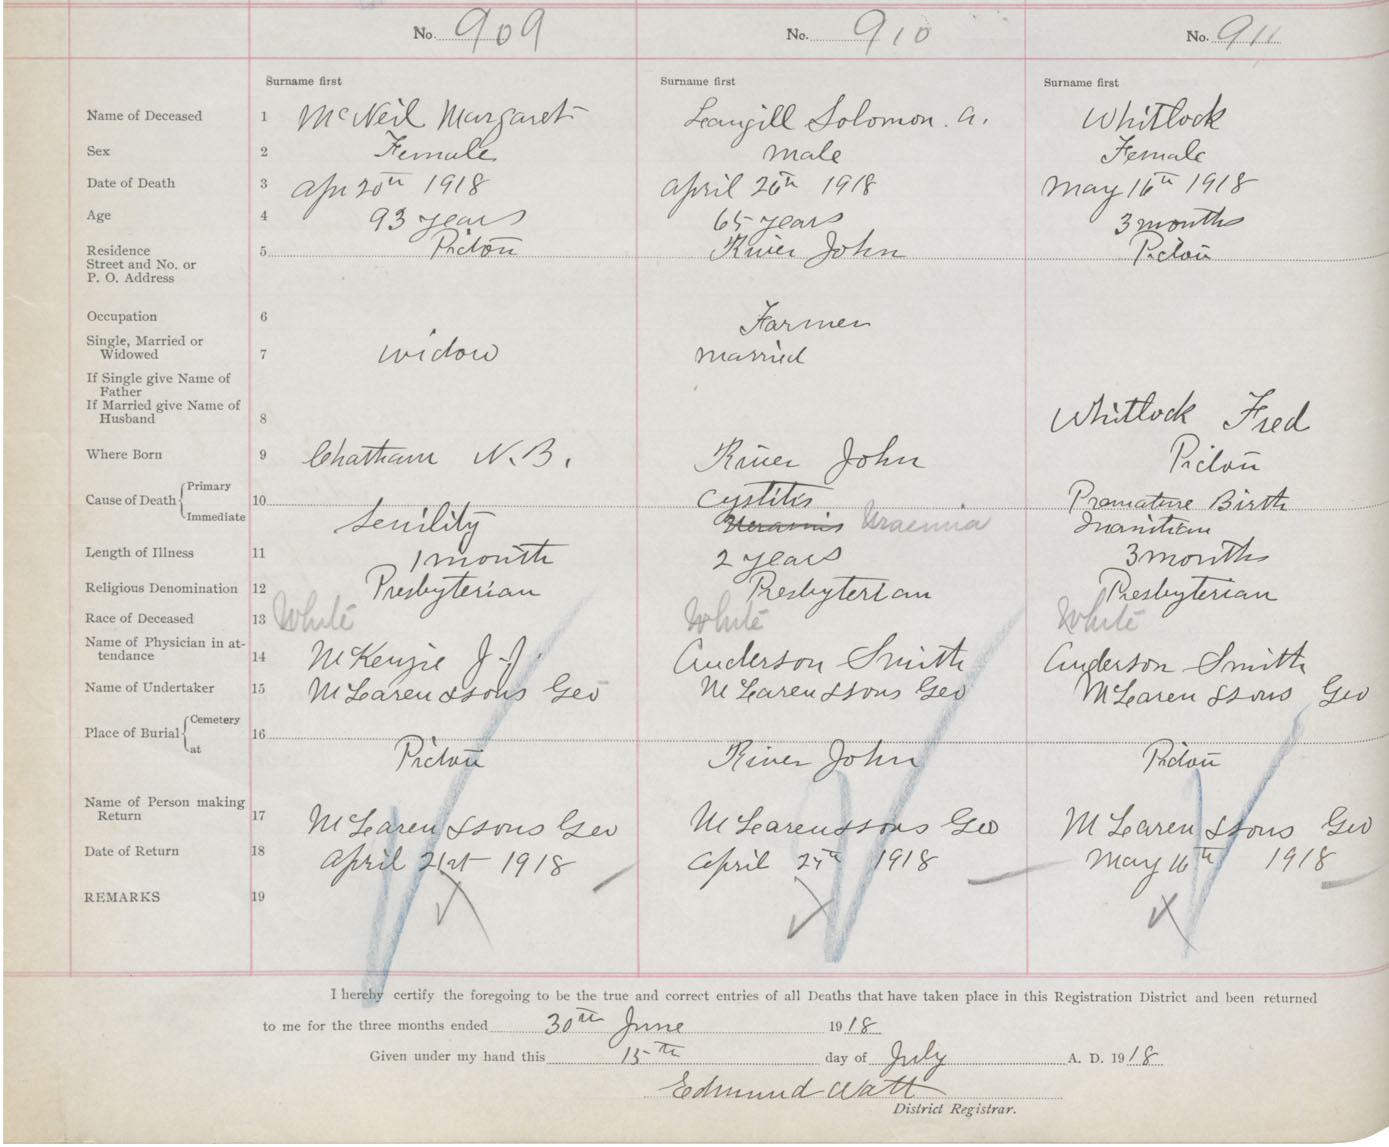 No. 909 No. 910 No. 911
Surname first Surname first Surname first
Name of Deceased 1 McNeil Margaret Langill Solomon. A. Whitlock
Sex 2 Female male Female
Date of Death 3 Apr 20th 1918 April 26th 1918 May 16th 1918
Age 4 93 years 65 years 3 months
Residence
Street and No. or
P. O. Address
5 Pictou River John Pictou
Occupation 6 Farmer
Single, Married or
Widowed 7 widow married
If Single give Name of
Father
If Married give Name of
Husband 8 Whitlock Fred
Where Born 9 Chatham N.B. River John Pictou
Cause of Death Primary
Immediate
10 Cystitis Premature Birth
Senility Uraemia Inanition
Length of Illness 11 1 month 2 years 3 months
Religious Denomination 12 Presbyterian Presbyterian Presbyterian
Race of Deceased 13 White White White
Name of Physician in at-
tendance 14 McKenzie J. J. Anderson Smith Anderson Smith
Name of Undertaker 15 McLaren & Sons Geo McLaren & Sons Geo McLaren & Sons Geo
Place of Burial Cemetery
at
16 Pictou River John Pictou
Name of Person making
Return 17 McLaren & Sons Geo McLaren & Sons Geo McLaren & Sons Geo
Date of Return 18 April 21st 1918 April 27th 1918 May 16th 1918
REMARKS 19
I hereby certify the foregoing to be the true and correct entries of all Deaths that have taken place in this Registration District and been returned
to me for the three months ended 30th June 1918
Given under my hand this 15th day of July A. D. 1918
Edmund Watt
District Registrar.